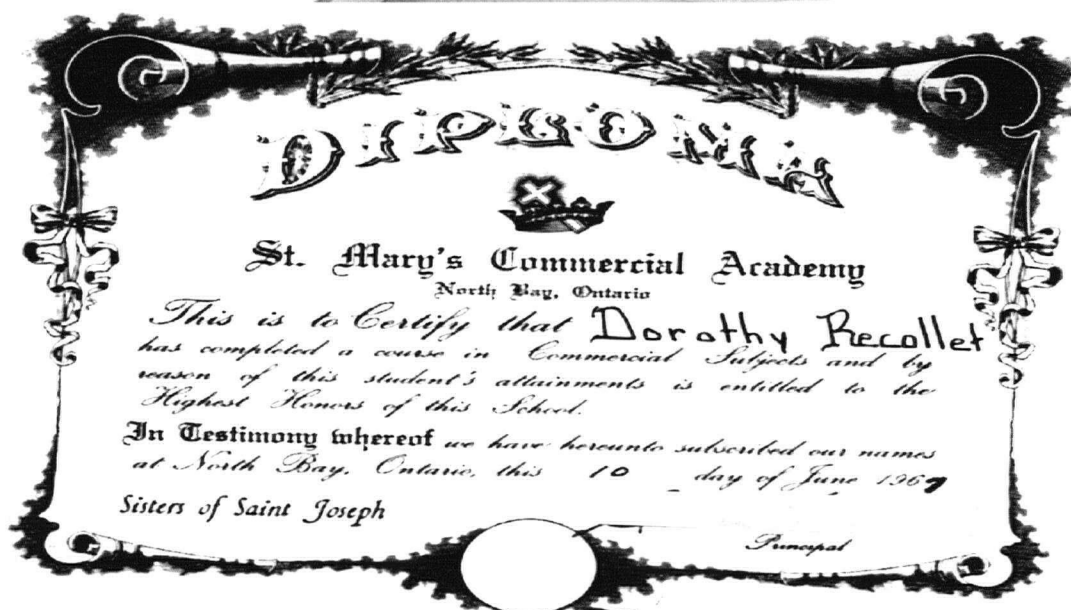 DIPLOMA
St. Mary's Commercial Academy
North Bay, Ontario
This is to Certify that Dorothy Recollet
has completed a course in Commercial Subjects and by
reason of this student's attainments is entitled to the
Highest Honors of this School.
In Testimony whereof we have hereunto subscribed our names
at North Bay, Ontario, this 10 day of June 1969
Sisters of Saint Joseph
Principal